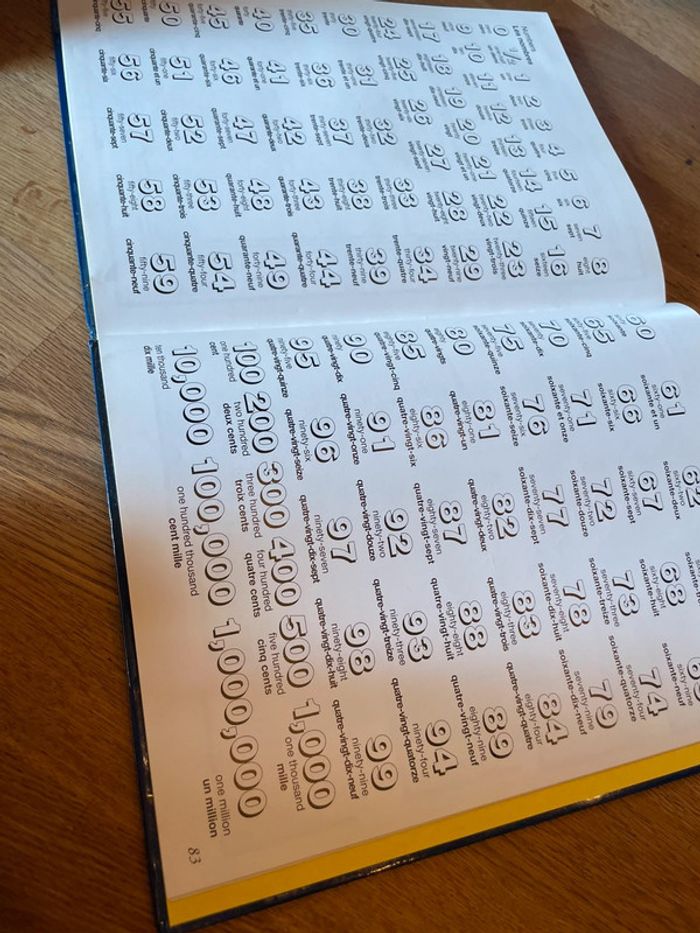 Numbers
Les nombres
0 1 2 3 4 5 6 7 8
seven eight
sept huit
9 10 11 12 13 14 15 16
sixteen
seize
17 18 19 20 21 22 23
twenty-three
vingt-trois
24 25 26 27 28 29
twenty-seven twenty-eight twenty-nine
vingt-sept vingt-huit vingt-neuf
30 31 32 33 34
thirty thirty-one thirty-two thirty-three thirty-four
trente trente et un trente-deux trente-trois trente-quatre
35 36 37 38 39
thirty-five thirty-six thirty-seven thirty-eight thirty-nine
trente-cinq trente-six trente-sept trente-huit trente-neuf
40 41 42 43 44
forty forty-one forty-two forty-three forty-four
quarante quarante et un quarante-deux quarante-trois quarante-quatre
45 46 47 48 49
forty-five forty-six forty-seven forty-eight forty-nine
quarante-cinq quarante-six quarante-sept quarante-huit quarante-neuf
50 51 52 53 54
fifty fifty-one fifty-two fifty-three fifty-four
cinquante cinquante et un cinquante-deux cinquante-trois cinquante-quatre
55 56 57 58 59
fifty-five fifty-six fifty-seven fifty-eight fifty-nine
cinquante-cinq cinquante-six cinquante-sept cinquante-huit cinquante-neuf
60 61 62
sixty sixty-one sixty-two
soixante soixante et un soixante-deux
65 66 67 68
sixty-five sixty-six sixty-seven sixty-eight sixty-nine
soixante-cinq soixante-six soixante-sept soixante-huit soixante-neuf
70 71 72 73 74
seventy seventy-one seventy-two seventy-three seventy-four
soixante-dix soixante et onze soixante-douze soixante-treize soixante-quatorze
75 76 77 78 79
seventy-five seventy-six seventy-seven seventy-eight seventy-nine
soixante-quinze soixante-seize soixante-dix-sept soixante-dix-huit soixante-dix-neuf
80 81 82 83 84
eighty eighty-one eighty-two eighty-three eighty-four
quatre-vingts quatre-vingt-un quatre-vingt-deux quatre-vingt-trois quatre-vingt-quatre
85 86 87 88 89
eighty-five eighty-six eighty-seven eighty-eight eighty-nine
quatre-vingt-cinq quatre-vingt-six quatre-vingt-sept quatre-vingt-huit quatre-vingt-neuf
90 91 92 93 94
ninety ninety-one ninety-two ninety-three ninety-four
quatre-vingt-dix quatre-vingt-onze quatre-vingt-douze quatre-vingt-treize quatre-vingt-quatorze
95 96 97 98 99
ninety-five ninety-six ninety-seven ninety-eight ninety-nine
quatre-vingt-quinze quatre-vingt-seize quatre-vingt-dix-sept quatre-vingt-dix-huit quatre-vingt-dix-neuf
100 200 300 400 500 1,000
one hundred two hundred three hundred four hundred five hundred one thousand
cent deux cents trois cents quatre cents cinq cents mille
10,000 100,000 1,000,000
ten thousand one hundred thousand one million
dix mille cent mille un million
83